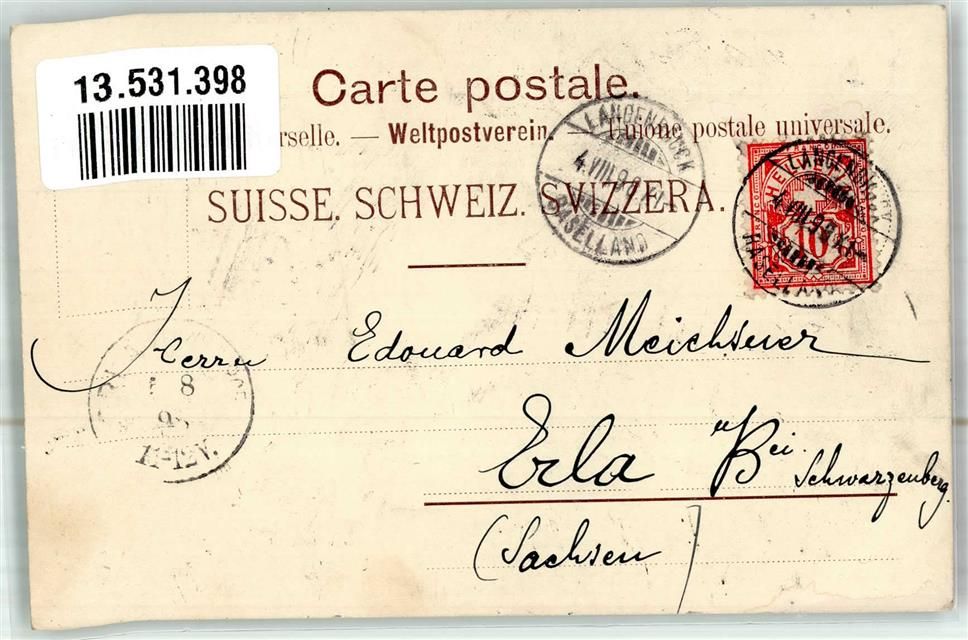 13.531.398
Carte postale.
erselle. — Weltpostverein. — Unione postale universale.
SUISSE. SCHWEIZ. SVIZZERA.
LANGENBRUCK
4.VIII.9
BASELLAND
10
Herrn Edouard Meichsner
8
11-12V.
Erla Bei Schwarzenberg
(Sachsen)